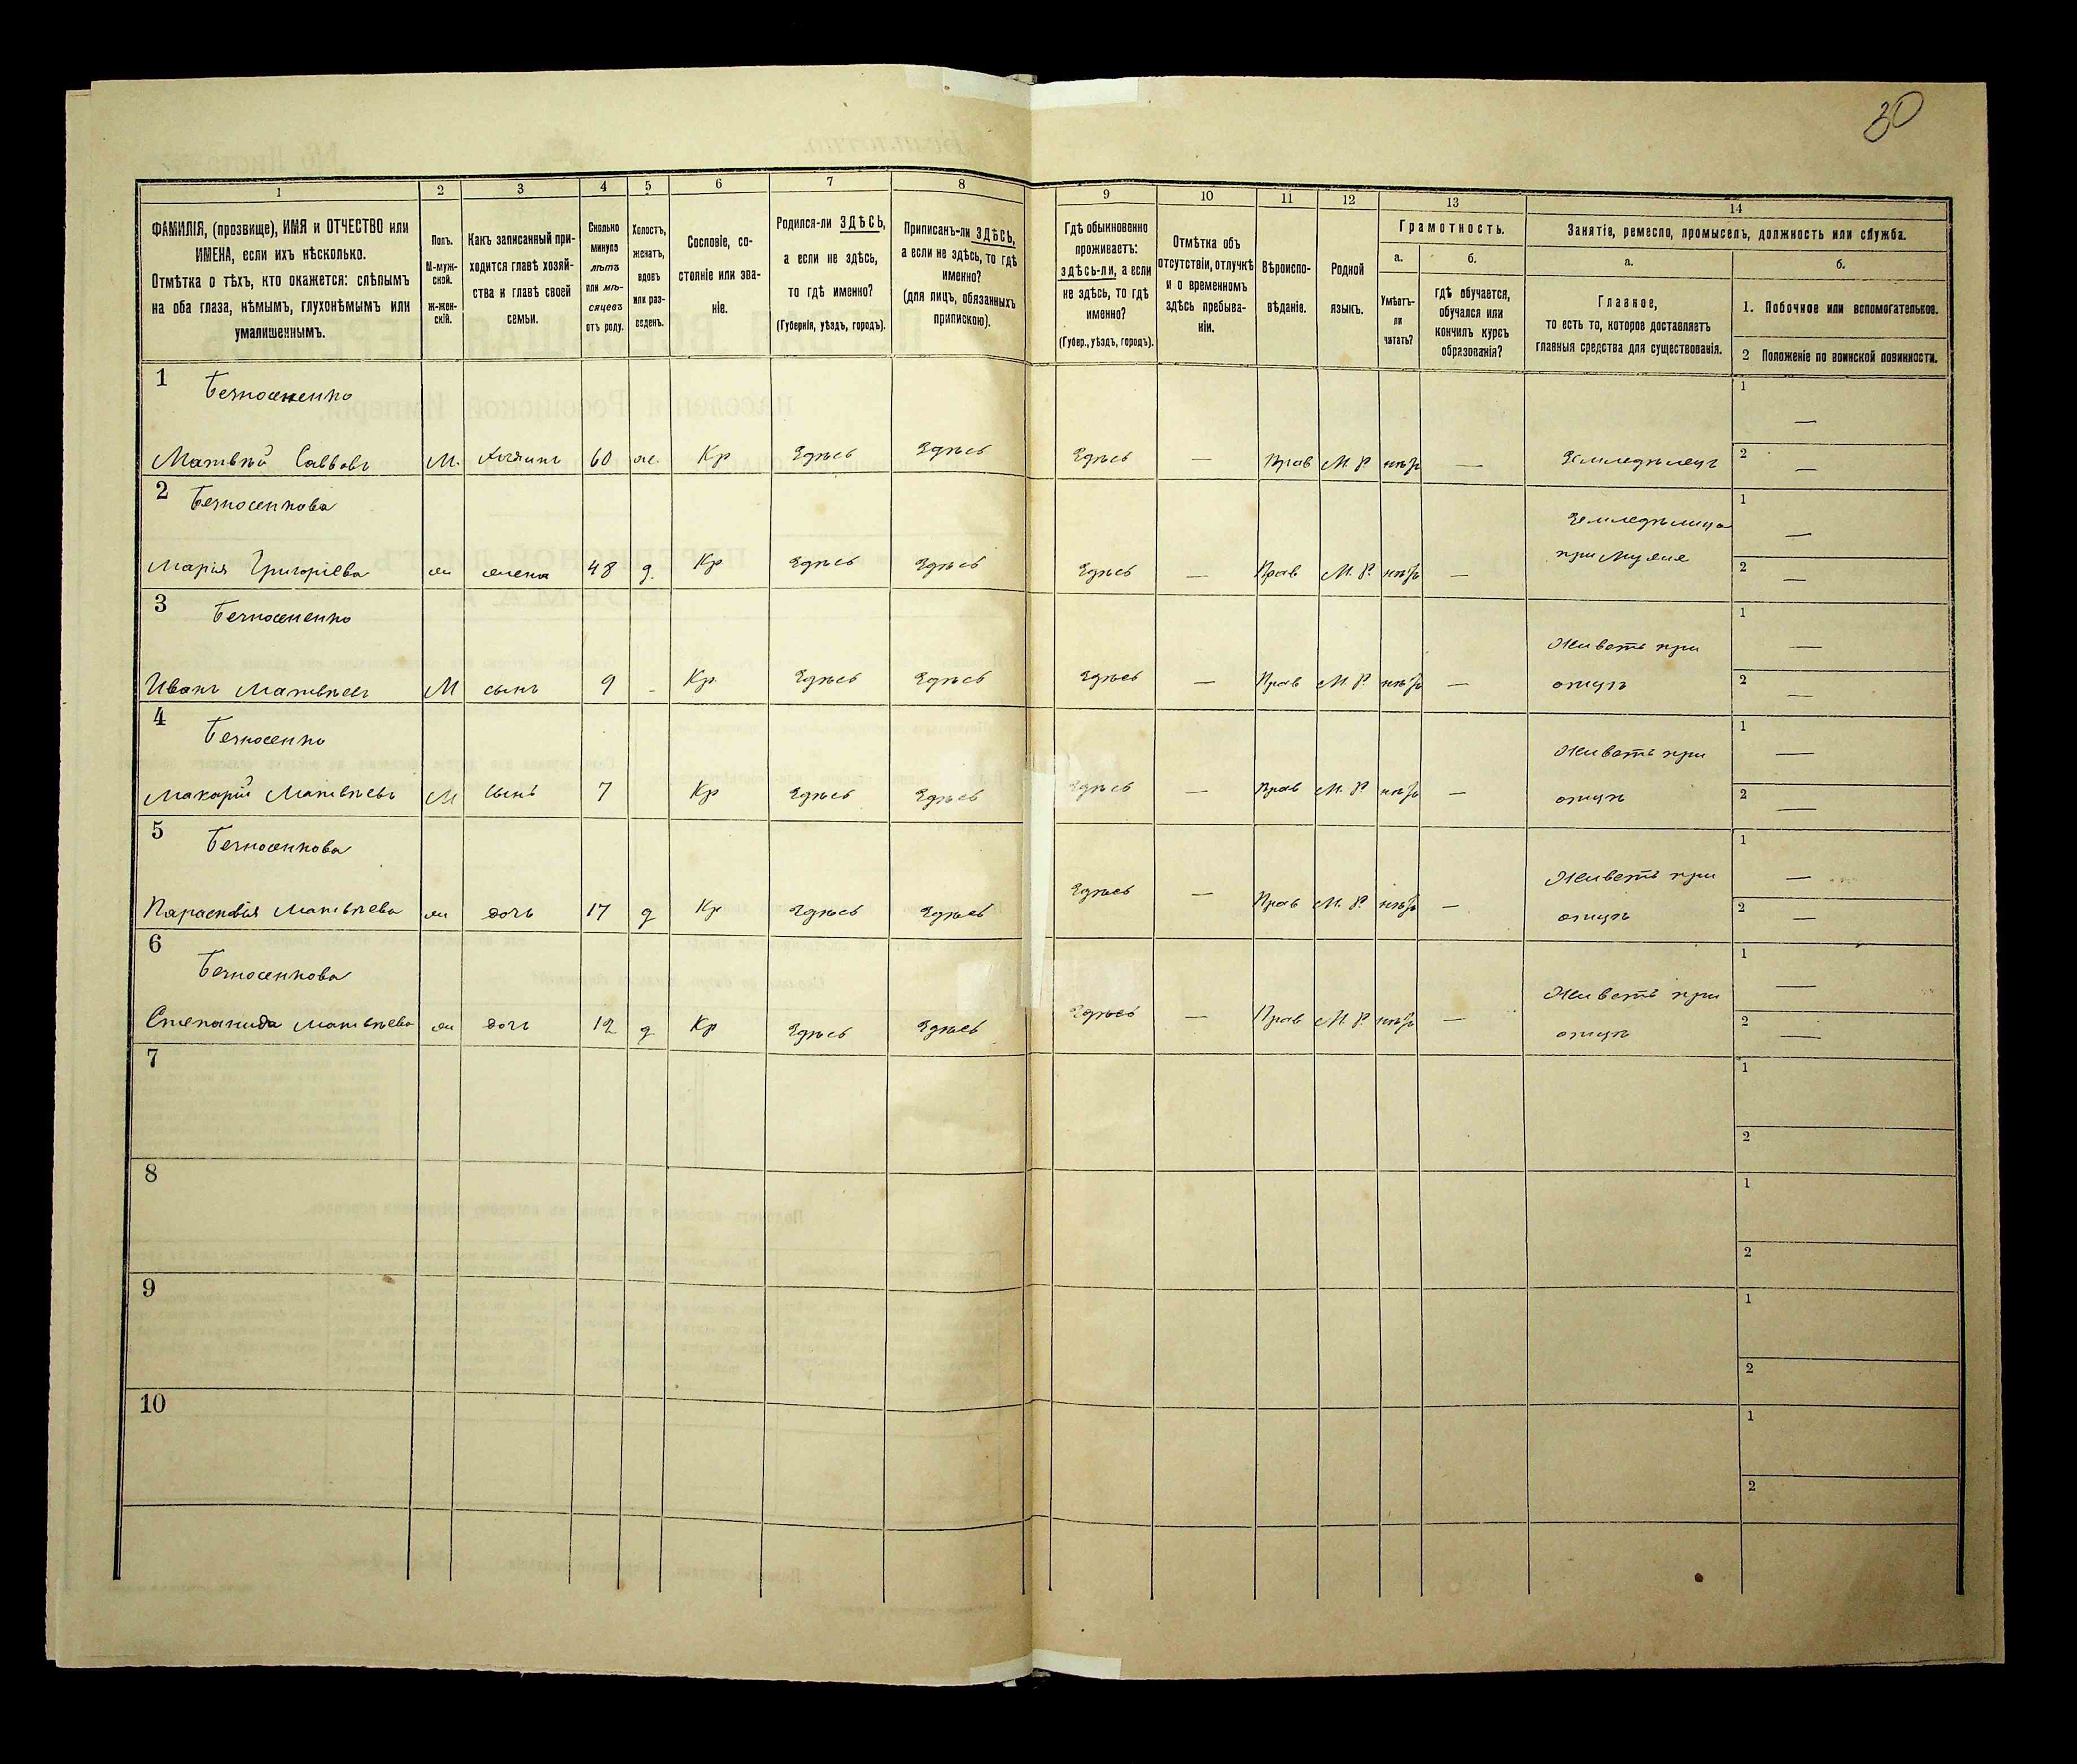 30
1 2 3 4 5 6 7 8 9 10 11 12 13 14
ФАМИЛІЯ, (прозвище), ИМЯ и ОТЧЕСТВО или ИМЕНА, если ихъ нѣсколько.
Отмѣтка о тѣхъ, кто окажется: слѣпымъ на оба глаза, нѣмымъ, глухонѣмымъ или умалишеннымъ.
Полъ. М-муж-ской. ж-жен-скій.
Какъ записанный при-ходится главѣ хозяй-ства и главѣ своей семьи.
Сколько минуло лѣтъ или мѣ-сяцевъ отъ роду.
Холостъ, женатъ, вдовъ или раз-веденъ.
Сословіе, со-стояніе или зва-ніе.
Родился-ли ЗДѢСЬ, а если не здѣсь, то гдѣ именно? (Губернія, уѣздъ, городъ).
Приписанъ-ли ЗДѢСЬ, а если не здѣсь, то гдѣ именно? (для лицъ, обязанныхъ припискою).
Гдѣ обыкновенно проживаетъ: здѣсь-ли, а если не здѣсь, то гдѣ именно? (Губер., уѣздъ, городъ).
Отмѣтка объ отсутствіи, отлучкѣ и о временномъ здѣсь пребыва-ніи.
Вѣроиспо-вѣданіе.
Родной языкъ.
Грамотность.
а. Умѣетъ-ли читать?
б. гдѣ обучается, обучался или кончилъ курсъ образованія?
Занятіе, ремесло, промыселъ, должность или служба.
а. Главное, то есть то, которое доставляетъ главныя средства для существованія.
б.
1. Побочное или вспомогательное.
2 Положеніе по воинской повинности.
1 Безносененко 1 —
Матвѣй Саввовъ М. Хозяинъ 60 ж. Кр Здѣсь Здѣсь Здѣсь — Прав М. Р. нѣтъ — Земледѣлецъ 2 —
2 Безносенкова Земледѣлица 1 —
Марія Григоріева ж жена 48 з. Кр Здѣсь Здѣсь Здѣсь — Прав М. Р. нѣтъ — при Мужѣ 2 —
3 Безносененко Живетъ при 1 —
Иванъ Матвѣевъ М сынъ 9 - Кр. Здѣсь Здѣсь Здѣсь — Прав М. Р. нѣтъ — отцѣ 2 —
4 Безносенко Живетъ при 1 —
Макарій Матвѣевъ М сынъ 7 Кр Здѣсь Здѣсь Здѣсь — Прав М. Р. нѣтъ — отцѣ 2 —
5 Безносенкова Живетъ при 1 —
Параскевія Матвѣева ж дочь 17 д Кр Здѣсь Здѣсь Здѣсь — Прав М. Р. нѣтъ — отцѣ 2 —
6 Безносенкова Живетъ при 1 —
Степанида Матвѣева ж дочь 12 д Кр Здѣсь Здѣсь Здѣсь — Прав М. Р. нѣтъ — отцѣ 2 —
7 1
2
8 1
2
9 1
2
10 1
2